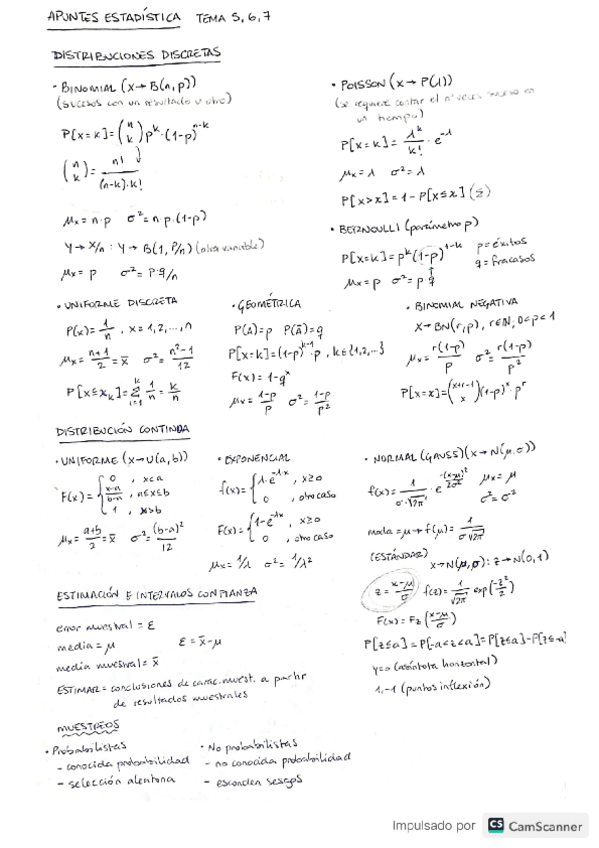 APUNTES ESTADÍSTICA TEMA 5, 6, 7
DISTRIBUCIONES DISCRETAS
· BINOMIAL (x→B(n,p))
(sucesos con un resultado u otro)
P[x=k]=(n k) p^k·(1-p)^n-k
(n k)= n!/(n-k)·k!
μx=n·p σ²=n·p·(1-p)
Y→X/n : Y→B(1, P/n) (otra variable)
μx=p σ²=p·q/n
· POISSON (x→P(λ))
(se requiere contar el nº veces suceso en
un tiempo)
P[x=k]= λ^k/k! · e^-λ
μx=λ σ²=λ
P[x>x]=1-P[x≤x]
· BERNOULLI (parámetro p)
P[x=k]=p^k(1-p)^1-k p=éxitos
q=fracasos
μx=p σ²=p·q
· UNIFORME DISCRETA
P(x)= 1/n , x=1,2,...,n
μx= n+1/2 = x̄ σ²= n²-1/12
P[x≤xk]= Σ i=1 k 1/n = k/n
· GEOMÉTRICA
P(A)=p P(Ā)=q
P[x=k]=(1-p)^k-1·p, k∈{1,2,...}
F(x)=1-q^x
μx= 1-p/p σ²= 1-p/p²
· BINOMIAL NEGATIVA
X→BN(r,p), r∈ℕ, 0<p<1
μx= r(1-p)/p σ²= r(1-p)/p²
P[x=x]=(x+r-1 x)(1-p)^x p^r
DISTRIBUCIÓN CONTINUA
· UNIFORME (x→U(a,b))
F(x)={ 0 , x<a
x-a/b-a , a≤x≤b
1 , x>b
μx= a+b/2 = x̄ σ²= (b-a)²/12
· EXPONENCIAL
f(x)={ λ·e^-λx , x≥0
0 , otro caso
F(x)={ 1-e^-λx , x≥0
0 , otro caso
μx=1/λ σ²=1/λ²
· NORMAL (GAUSS) (x→N(μ,σ))
f(x)= 1/σ·√2π · e^-(x-μ)²/2σ² μx=μ
σ²=σ²
moda=μ→f(μ)= 1/σ√2π
(ESTÁNDAR) x→N(μ,σ): z→N(0,1)
z= x-μ/σ f(z)= 1/√2π exp(-z²/2)
F(x)=Fz(x-μ/σ)
P[z≤a]=P[-a<z<a]=P[z≤a]-P[z≤-a]
y=0 (asíntota horizontal)
1,-1 (puntos inflexión)
ESTIMACIÓN E INTERVALOS CONFIANZA
error muestral = ε
media = μ ε=x̄-μ
media muestral = x̄
ESTIMAR = conclusiones de carac. muest. a partir
de resultados muestrales
MUESTREOS
· Probabilistas
- conocida probabilidad
- selección aleatoria
· No probabilistas
- no conocida probabilidad
- esconden sesgos
Impulsado por CS CamScanner